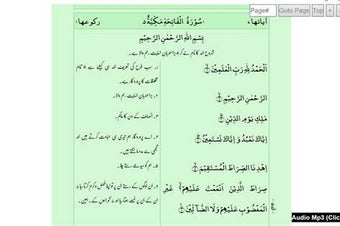 Page# Goto Page Top + -
اٰیاتھا، سُوْرَةُ الْفَاتِحَةِ مَكِّيَّةٌ ٥ رکوعھا ۱
بِسْمِ اللّٰهِ الرَّحْمٰنِ الرَّحِيْمِ
شروع اللہ کا نام لے کر جو بڑا مہربان نہایت رحم والا ہے۔
اَلْحَمْدُ لِلّٰهِ رَبِّ الْعٰلَمِيْنَ ۝ ۱۔ سب طرح کی تعریف اللہ ہی کیلئے ہے جو تمام
مخلوقات کا پروردگار ہے۔
الرَّحْمٰنِ الرَّحِيْمِ ۝ ۲۔ بڑا مہربان نہایت رحم والا ہے۔
مٰلِكِ يَوْمِ الدِّيْنِ ۝ ۳۔ انصاف کے دن کا حاکم۔
اِيَّاكَ نَعْبُدُ وَ اِيَّاكَ نَسْتَعِيْنُ ۝ ۴۔ اے پروردگار ہم تیری ہی عبادت کرتے ہیں اور
تجھی سے مدد مانگتے ہیں۔
اِهْدِنَا الصِّرَاطَ الْمُسْتَقِيْمَ ۝ ۵۔ ہم کو سیدھے رستے چلا۔
صِرَاطَ الَّذِيْنَ اَنْعَمْتَ عَلَيْهِمْ غَيْرِ ۶۔ ان لوگوں کے رستے جن پر تو اپنا فضل و کرم کرتا رہا نہ
الْمَغْضُوْبِ عَلَيْهِمْ وَلَا الضَّآلِّيْنَ ۝ ان کے جن پر غصے ہوتا رہا اور نہ گمراہوں کے۔ آمین۔
Audio Mp3 (Clic